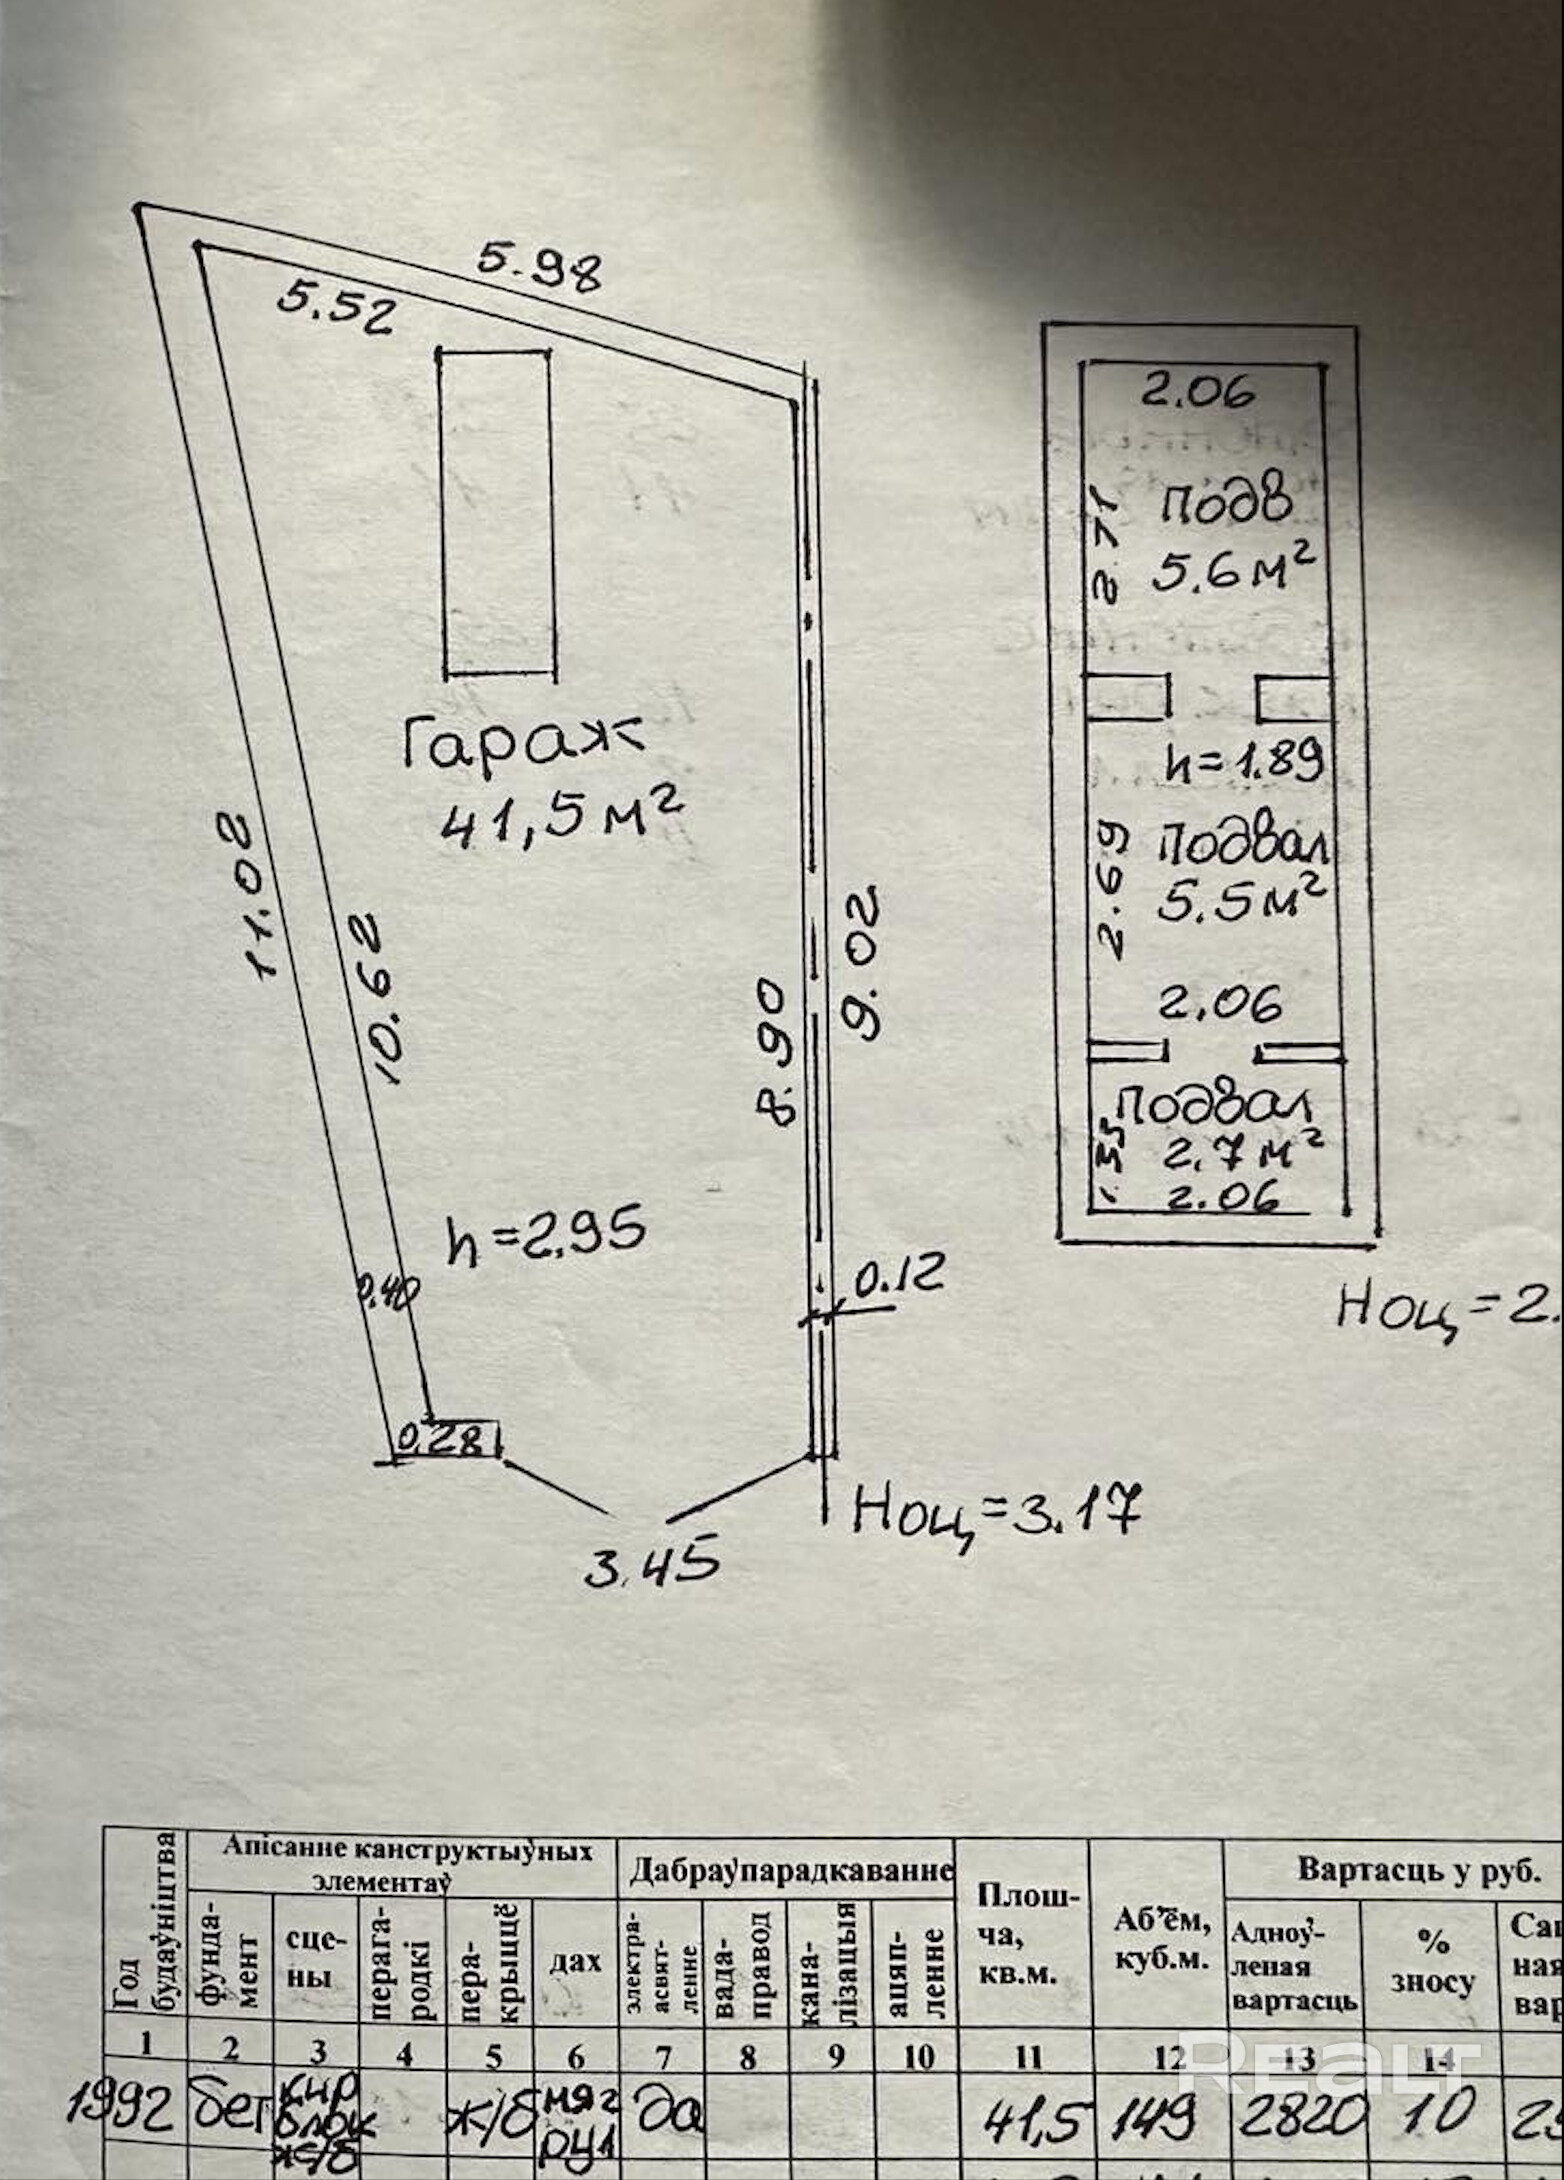 5.98
5.52
2.06
2.71
подв
5.6 м²
Гараж
41,5 м²
h=1.89
11.02
10.62
8.90
9.02
2.69
подвал
5.5 м²
2.06
подвал
1.33
2.7 м²
2.06
h=2.95
0.40
0.12
Ноц=2.
0.28
Ноц=3.17
3.45
Год будаўніцтва
Апісанне канструктыўных
элементаў
Дабраўпарадкаванне
Плош-
ча,
кв.м.
Аб’ём,
куб.м.
Вартасць у руб.
фунда-
мент
сце-
ны
перага-
родкі
пера-
крыццё
дах
электра-
асвят-
ленне
вада-
правод
кана-
лізацыя
ацяп-
ленне
Адноў-
леная
вартасць
%
зносу
ная
1 2 3 4 5 6 7 8 9 10 11 12 13 14
1992 бет кир блок ж/б ж/б мяг рул да 41,5 149 2820 10
Realt